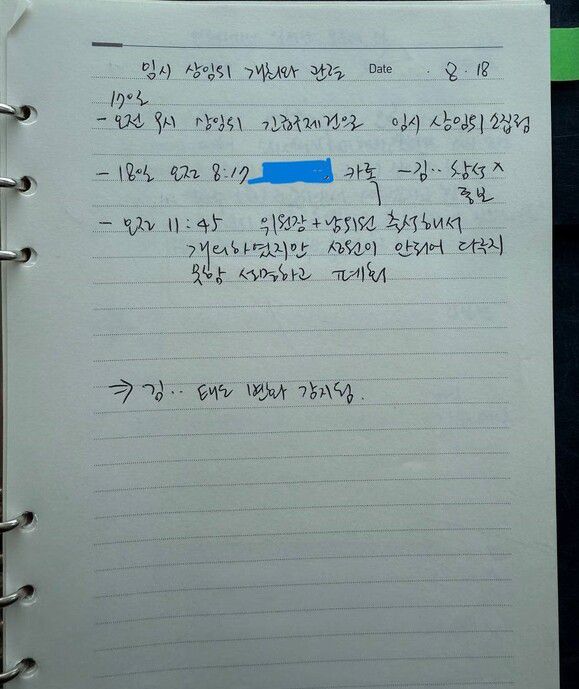 임시 상임위 개최와 관련 Date . 8 . 18
17일
- 오전 9시 상임위 긴급구제건으로 임시 상임위 소집됨
- 18일 오전 8:17 카톡 - 김.. 참석 x
통보
- 오전 11:45 위원장+남위원 출석해서
개의하였지만 성원이 안되어 다루지
못함 설명하고 폐회
⇒ 김.. 태도 변화 감지됨.